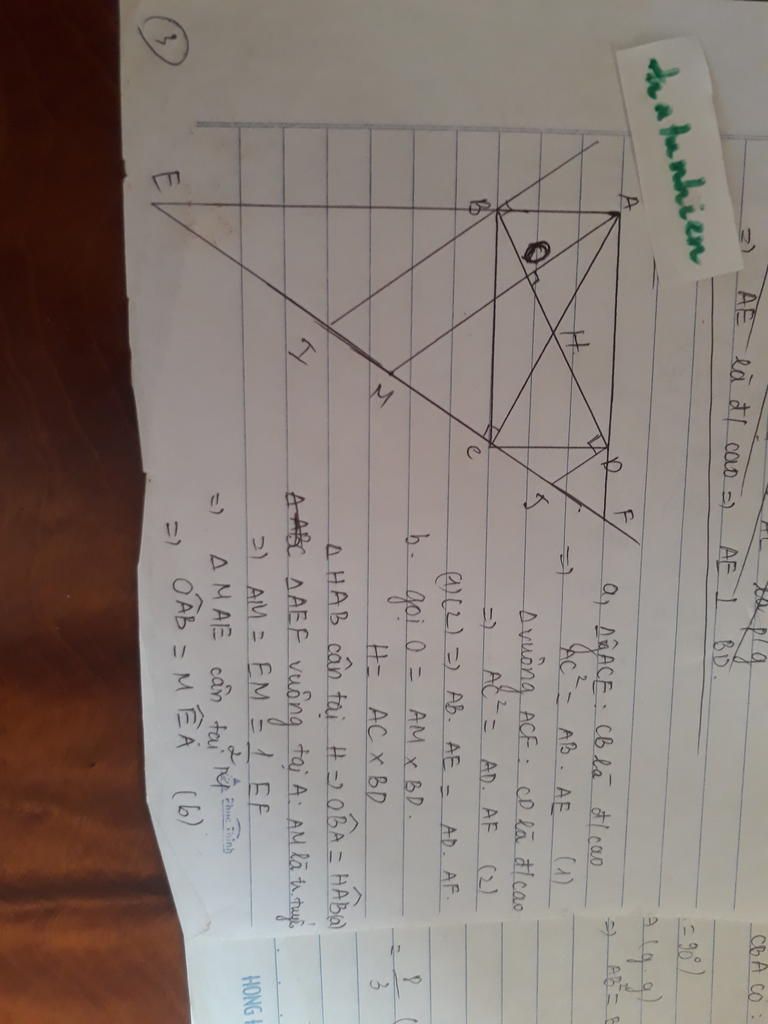 tuatunhien
=) AE là đ/cao =) AE ⊥ BD.
p/g
3
E
B
A
O
H
I
M
C
D
J
F
a, Δv ACE: CB là đ/cao
=) AC² = AB. AE (1)
Δ vuông ACF: CD là đ/cao
=) AC² = AD. AF (2)
(1)(2) =) AB. AE = AD. AF.
b. gọi O = AM x BD.
H = AC x BD
Δ HAB cân tại H =) OBA = HAB (a)
Δ ABC Δ AEF vuông tại A: AM là tr. tuyến
=) AM = EM = 1/2 EF
=) Δ MAE cân tại
=) OAB = MEA (b)
CBA có:
= 90°)
(g.g)
=) AB² =
= 8/3
HONG H